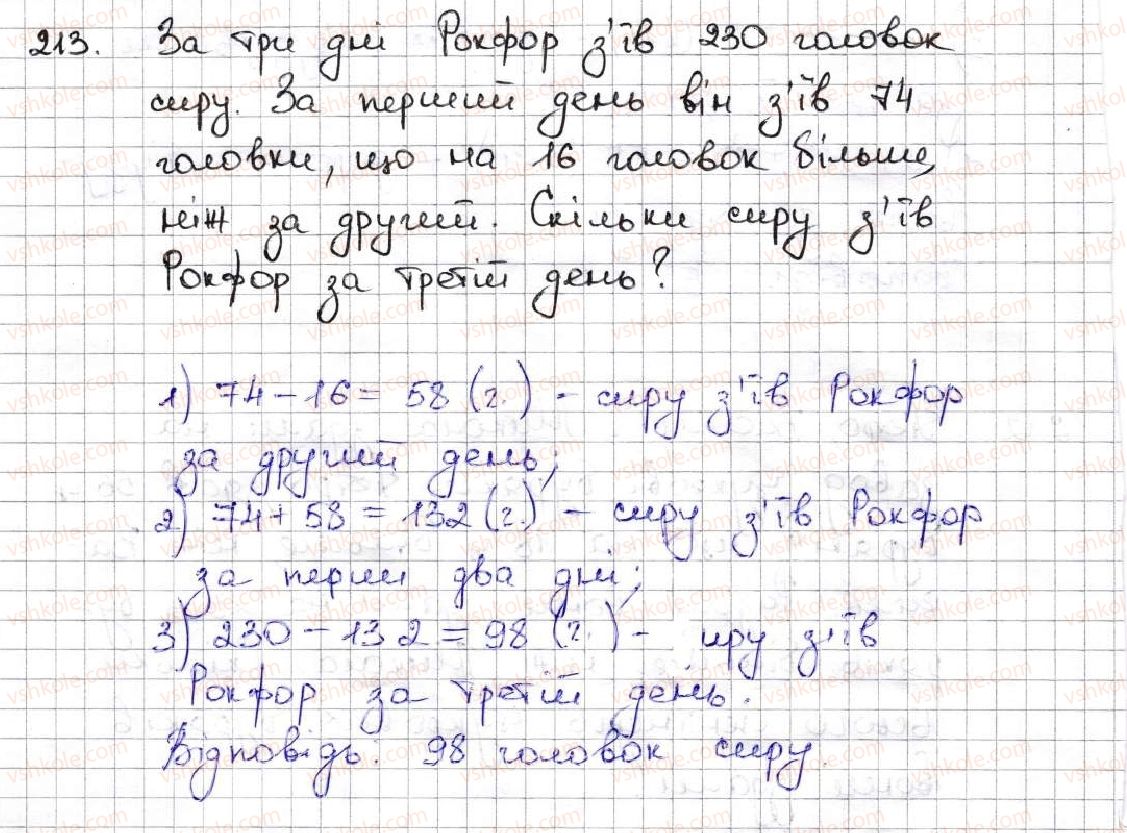 213. За три дні Рокфор з'їв 230 головок
сиру. За перший день він з'їв 74
головки, що на 16 головок більше,
ніж за другий. Скільки сиру з'їв
Рокфор за третій день?
1) 74 - 16 = 58 (г.) - сиру з'їв Рокфор
за другий день;
2) 74 + 58 = 132 (г.) - сиру з'їв Рокфор
за перші два дні;
3) 230 - 132 = 98 (г.) - сиру з'їв
Рокфор за третій день.
Відповідь: 98 головок сиру.